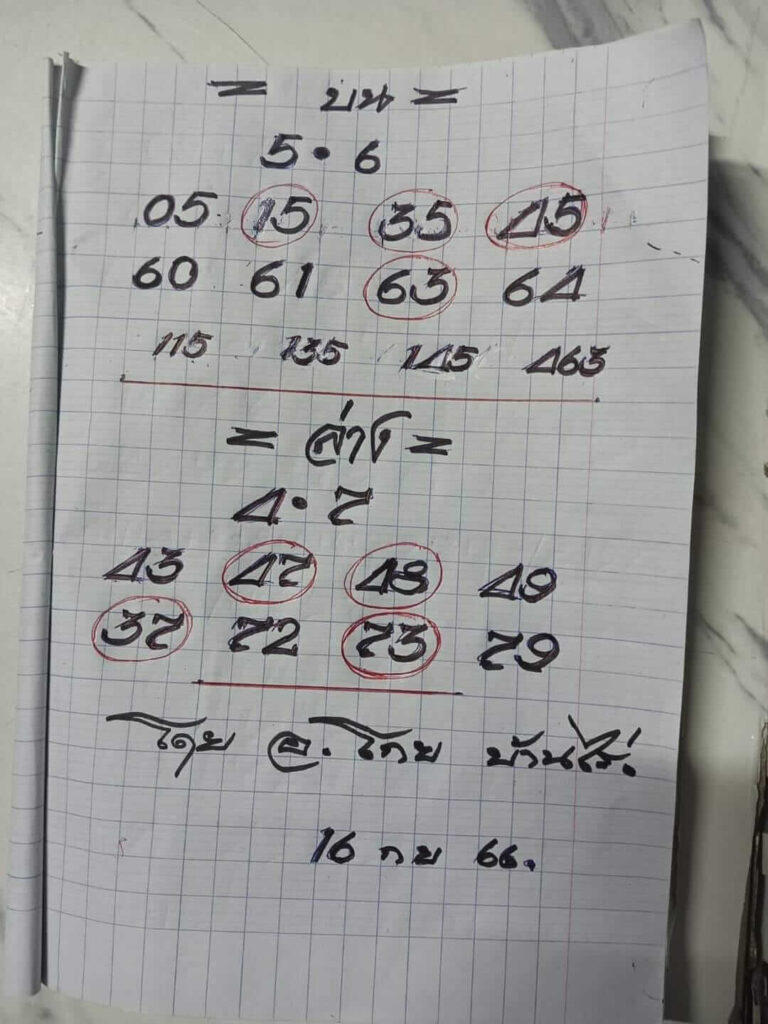 = บน =
5 • 6
05 15 35 45
60 61 63 64
115 135 145 463
= ล่าง =
4 • 7
43 47 48 49
37 72 73 79
โดย อ. โกย บ้านไร่.
16 กย 66.